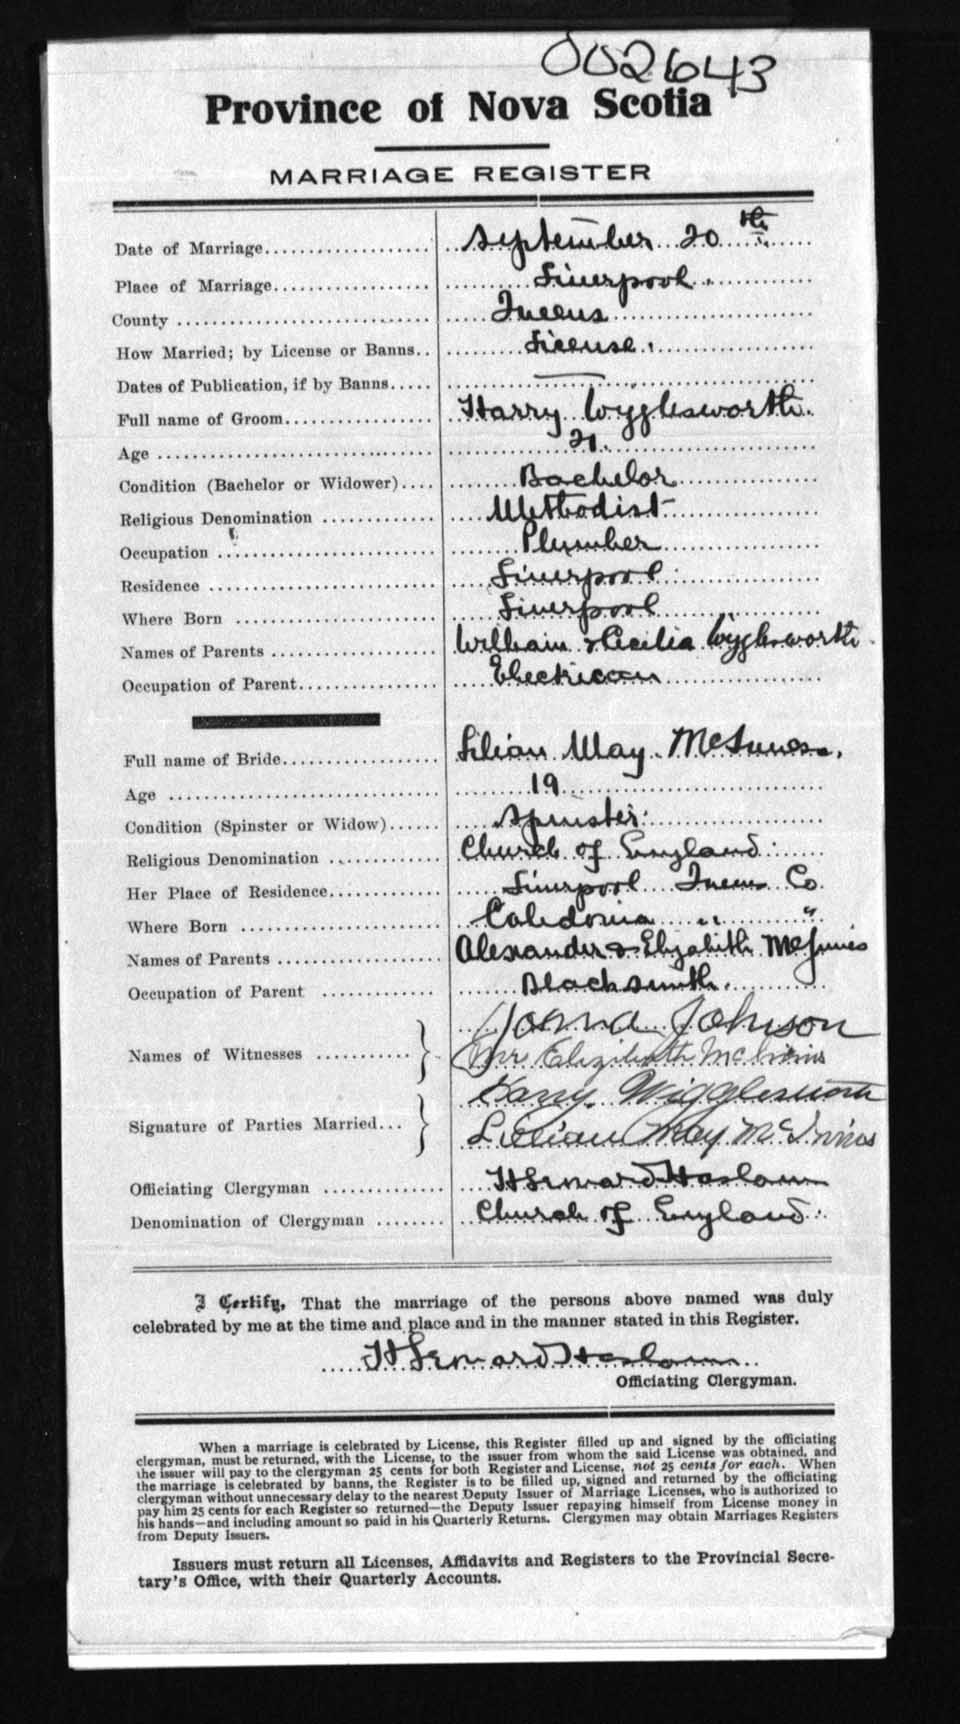 002643
Province of Nova Scotia
MARRIAGE REGISTER
Date of Marriage.................... September 20th
Place of Marriage.................. Liverpool
County ............................ Queens
How Married; by License or Banns.. License.
Dates of Publication, if by Banns..... —
Full name of Groom................. Harry Wyglesworth.
Age .............................. 21.
Condition (Bachelor or Widower).... Bachelor
Religious Denomination ............. Methodist
Occupation ........................ Plumber
Residence ......................... Liverpool
Where Born ...................... Liverpool
Names of Parents .................. William & Cecilia Wyglesworth
Occupation of Parent............... Electrican
Full name of Bride................. Lilian May McInnes.
Age .............................. 19
Condition (Spinster or Widow)...... Spinster.
Religious Denomination ............. Church of England
Her Place of Residence............. Liverpool Queens Co.
Where Born ...................... Caledonia " "
Names of Parents .................. Alexander & Elizabeth McInnis
Occupation of Parent ............. Blacksmith.
Johnson
Names of Witnesses ........... } Elizibeth McInnis
Harry Wigglesworth
Signature of Parties Married... } Lillian May McInnis
Officiating Clergyman .............. Haslam
Denomination of Clergyman ........ Church of England.
I Certify, That the marriage of the persons above named was duly
celebrated by me at the time and place and in the manner stated in this Register.
Haslam
Officiating Clergyman.
When a marriage is celebrated by License, this Register filled up and signed by the officiating
clergyman, must be returned, with the License, to the issuer from whom the said License was obtained, and
the issuer will pay to the clergyman 25 cents for both Register and License, not 25 cents for each. When
the marriage is celebrated by banns, the Register is to be filled up, signed and returned by the officiating
clergyman without unnecessary delay to the nearest Deputy Issuer of Marriage Licenses, who is authorized to
pay him 25 cents for each Register so returned—the Deputy Issuer repaying himself from License money in
his hands—and including amount so paid in his Quarterly Returns. Clergymen may obtain Marriages Registers
from Deputy Issuers.
Issuers must return all Licenses, Affidavits and Registers to the Provincial Secre-
tary's Office, with their Quarterly Accounts.